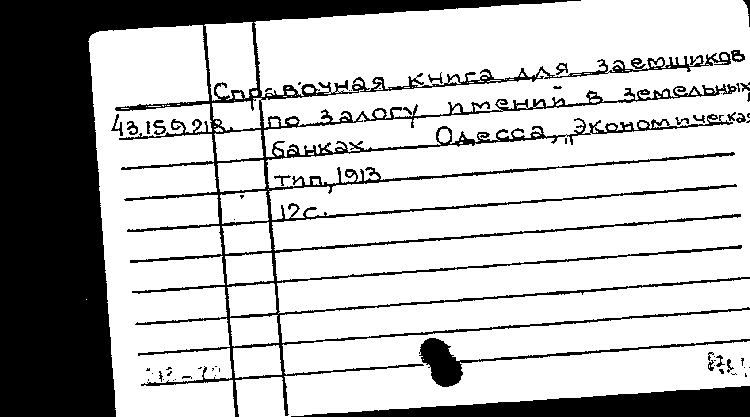 Справочная книга для заемщиков
43.15.9.218. по залогу имений в земельных
банках. Одесса, „Экономическая
тип., 1913
12 с.